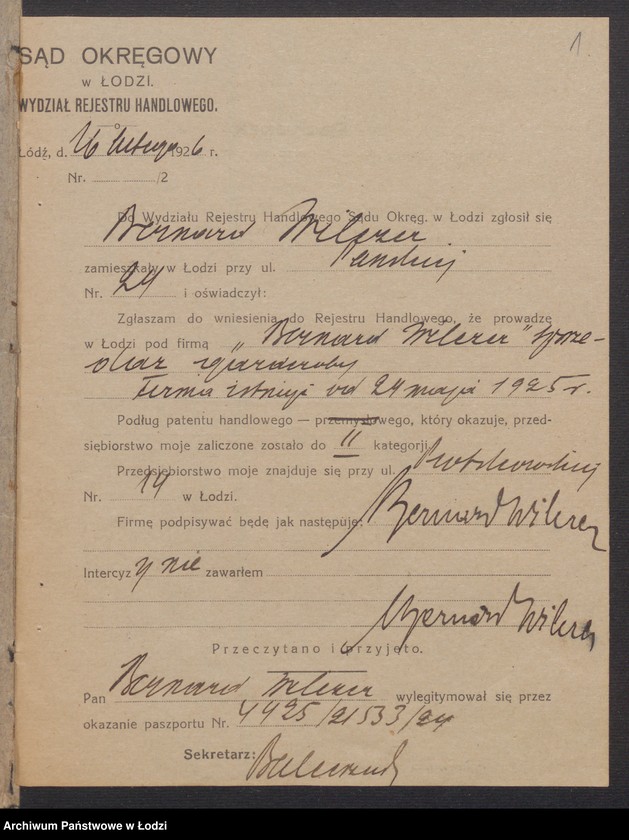 1.
SĄD OKRĘGOWY
w ŁODZI.
WYDZIAŁ REJESTRU HANDLOWEGO.
Łódź, d. 16 lutego 1926 r.
Nr. /2
Do Wydziału Rejestru Handlowego Sądu Okręg. w Łodzi zgłosił się
Bernard Wilczer
zamieszkały w Łodzi przy ul.
Nr. 24 i oświadczył:
Zgłaszam do wniesienia do Rejestru Handlowego, że prowadzę
w Łodzi pod firmą „Bernard Wilczer" sprze-
daż garderoby
Firma istnieje od 24 maja 1925 r.
Podług patentu handlowego — przemysłowego, który okazuje, przed-
siębiorstwo moje zaliczone zostało do II kategorji
Przedsiębiorstwo moje znajduje się przy ul. Piotrkowskiej
Nr. 19 w Łodzi.
Firmę podpisywać będę jak następuje: Bernard Wilczer
Intercyzy nie zawarłem
Bernard Wilczer
Przeczytano i przyjęto.
Pan Bernard Wilczer wylegitymował się przez
okazanie paszportu Nr. 4425/21533/24
Sekretarz:
Archiwum Państwowe w Łodzi